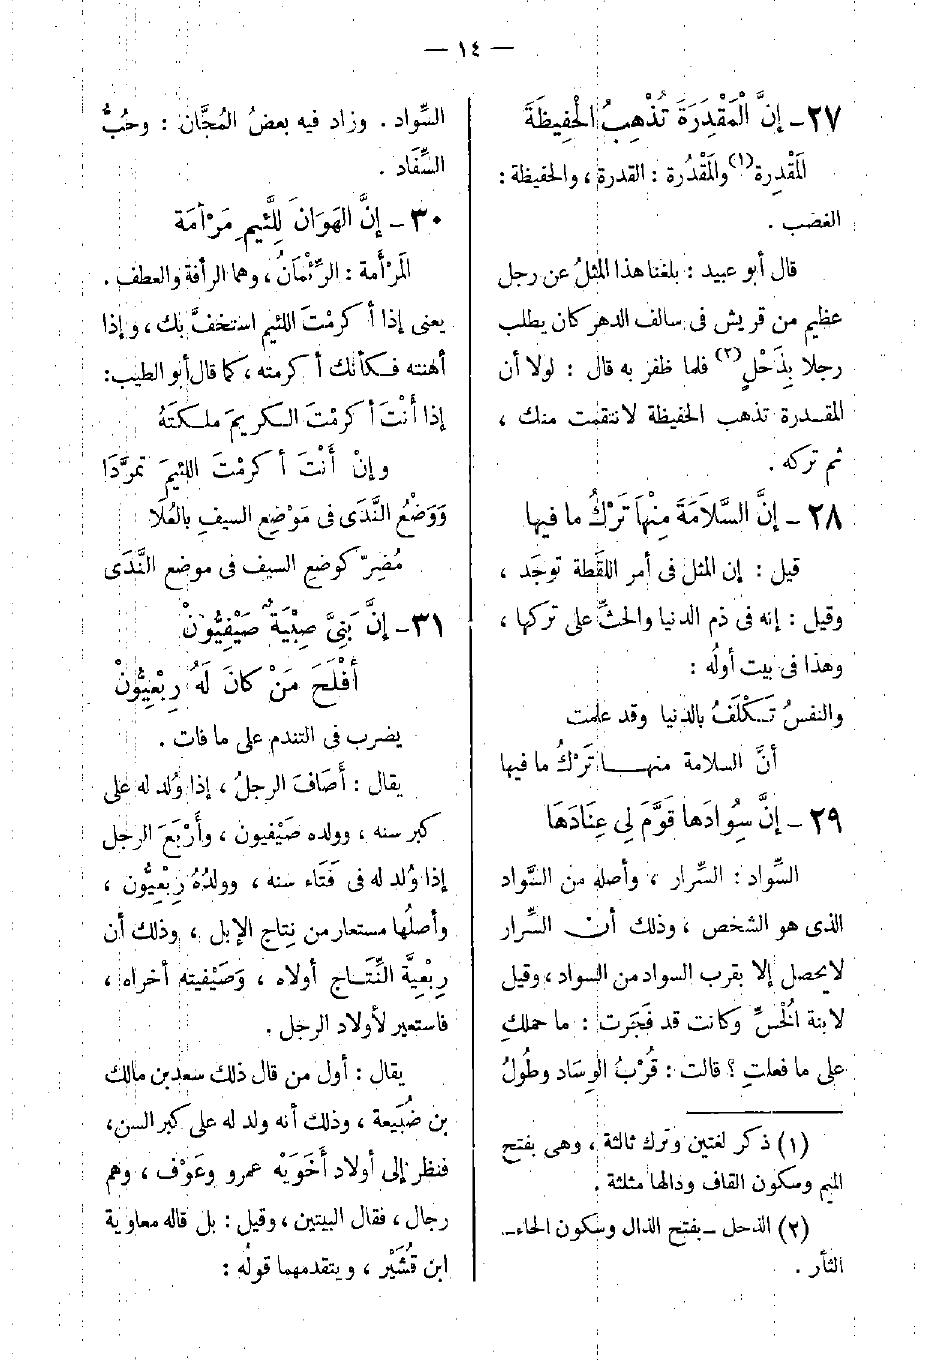 — ١٤ —
٢٧ – إنَّ الْمَقْدِرَةَ تُذْهِبُ الْحَفِيظَةَ
الَمَقْدِرة(١) والَمَقْدُرة : القدرة ، والحفيظة :
الغضب .
قال أبو عبيد : بلغنا هذا المثلُ عن رجل
عظيم من قريش فى سالف الدهر كان يطلب
رجلا بِذَحْلٍ(٢) فلما ظفر به قال : لولا أن
المقدرة تذهب الحفيظة لانتقمت منك ،
ثم تركه .
٢٨ – إنَّ السَّلاَمَةَ مِنْهَا تَرْكُ ما فيها
قيل : إن المثل فى أمر اللقَطة توجَد ،
وقيل : إنه فى ذم الدنيا والحثِّ على تركها ،
وهذا فى بيت أولُه :
والنفسُ تَكْلَفُ بالدنيا وقد علمت
أنَّ السلامة منها تَرْكُ ما فيها
٢٩ – إنَّ سِوادَها قَوَّمَ لِى عِنَادَهَا
السِّواد : السِّرار ، وأصله من السَّواد
الذى هو الشخص ، وذلك أن السِّرار
لايحصل إلا بقرب السواد من السواد ، وقيل
لابنة الْخُسِّ وكانت قد فَجَرت : ما حملكِ
على ما فعلتِ ؟ قالت : قُرْبُ الوِساد وطُولُ
(١) ذكر لغتين وترك ثالثة ، وهى بفتح
الميم وسكون القاف ودالها مثلثة .
(٢) الذحل – بفتح الذال وسكون الحاء –
الثأر .
السِّواد . وزاد فيه بعضُ المُجَّان : وحُبُّ
السِّفَاد .
٣٠ – إنَّ الهَوَانَ لِلَّئيمِ مَرْأمَة
الَمرْأَمة : الرِّئْمَانُ ، وهما الرأفة والعطف .
يعنى إذا أكرمْتَ اللئيم استخفَّ بك ، وإذا
أهنته فكأنك أكرمته ، كما قال أبو الطيب :
إذا أَنْتَ أكرمْتَ الكريمَ ملكتَهُ
وإنْ أَنْتَ أكرمْتَ اللئيمَ تمرَّدَا
وَوَضْعُ النَّدَى فى مَوْضِعِ السيفِ بالعُلاَ
مُضِرٌّ كوضعِ السيف فى موضع النَّدَى
٣١ – إنَّ بَنِىَّ صِبْيَةٌ صَيْفِيُّونْ
أَفْلَحَ مَنْ كانَ لَهُ رِبْعِيُّونْ
يضرب فى التندم على ما فات .
يقال : أَصَافَ الرجلُ ، إذا وُلد له على
كبر سنه ، وولده صَيْفيون ، وأَرْبَعَ الرجل
إذا وُلد له فى فَتَاء سنه ، وولدُهُ رِبْعِيُّون ،
وأصلُها مستعار من نِتاج الإبل ، وذلك أن
رِبْعِيَّة النِّتَاج أولاه ، وَصَيْفيته أخراه ،
فاستعير لأولاد الرجل .
يقال : أول من قال ذلك سعد بن مالك
بن ضُبَيعة ، وذلك أنه ولد له على كبر السن ،
فنظر إلى أولاد أَخَوَيْه عمرو وعَوْف ، وهم
رجال ، فقال البيتين ، وقيل : بل قاله معاوية
ابن قُشَيْر ، ويتقدمهما قولُه :